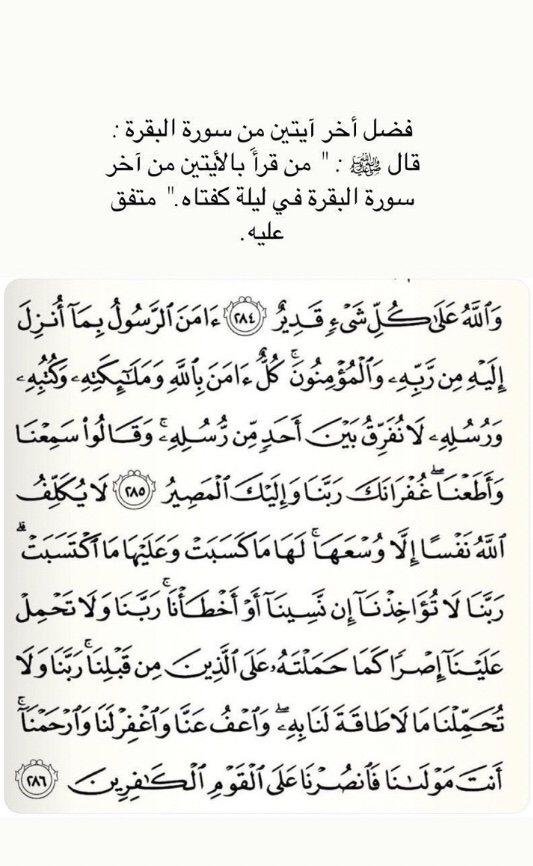 فضل أخر آيتين من سورة البقرة :
قال ﷺ : " من قرأ بالأيتين من آخر
سورة البقرة في ليلة كفتاه." متفق
عليه.
وَاللَّهُ عَلَىٰ كُلِّ شَىْءٍ قَدِيرٌ ٢٨٤ ءَامَنَ الرَّسُولُ بِمَآ أُنزِلَ
إِلَيْهِ مِن رَّبِّهِۦ وَالْمُؤْمِنُونَ ۚ كُلٌّ ءَامَنَ بِاللَّهِ وَمَلَـٰٓئِكَتِهِۦ وَكُتُبِهِۦ
وَرُسُلِهِۦ لَا نُفَرِّقُ بَيْنَ أَحَدٍ مِّن رُّسُلِهِۦ ۚ وَقَالُوا۟ سَمِعْنَا
وَأَطَعْنَا ۖ غُفْرَانَكَ رَبَّنَا وَإِلَيْكَ الْمَصِيرُ ٢٨٥ لَا يُكَلِّفُ
اللَّهُ نَفْسًا إِلَّا وُسْعَهَا ۚ لَهَا مَا كَسَبَتْ وَعَلَيْهَا مَا اكْتَسَبَتْ ۗ
رَبَّنَا لَا تُؤَاخِذْنَآ إِن نَّسِينَآ أَوْ أَخْطَأْنَا ۚ رَبَّنَا وَلَا تَحْمِلْ
عَلَيْنَآ إِصْرًا كَمَا حَمَلْتَهُۥ عَلَى الَّذِينَ مِن قَبْلِنَا ۚ رَبَّنَا وَلَا
تُحَمِّلْنَا مَا لَا طَاقَةَ لَنَا بِهِۦ ۖ وَاعْفُ عَنَّا وَاغْفِرْ لَنَا وَارْحَمْنَآ ۚ
أَنتَ مَوْلَـٰنَا فَانصُرْنَا عَلَى الْقَوْمِ الْكَـٰفِرِينَ ٢٨٦